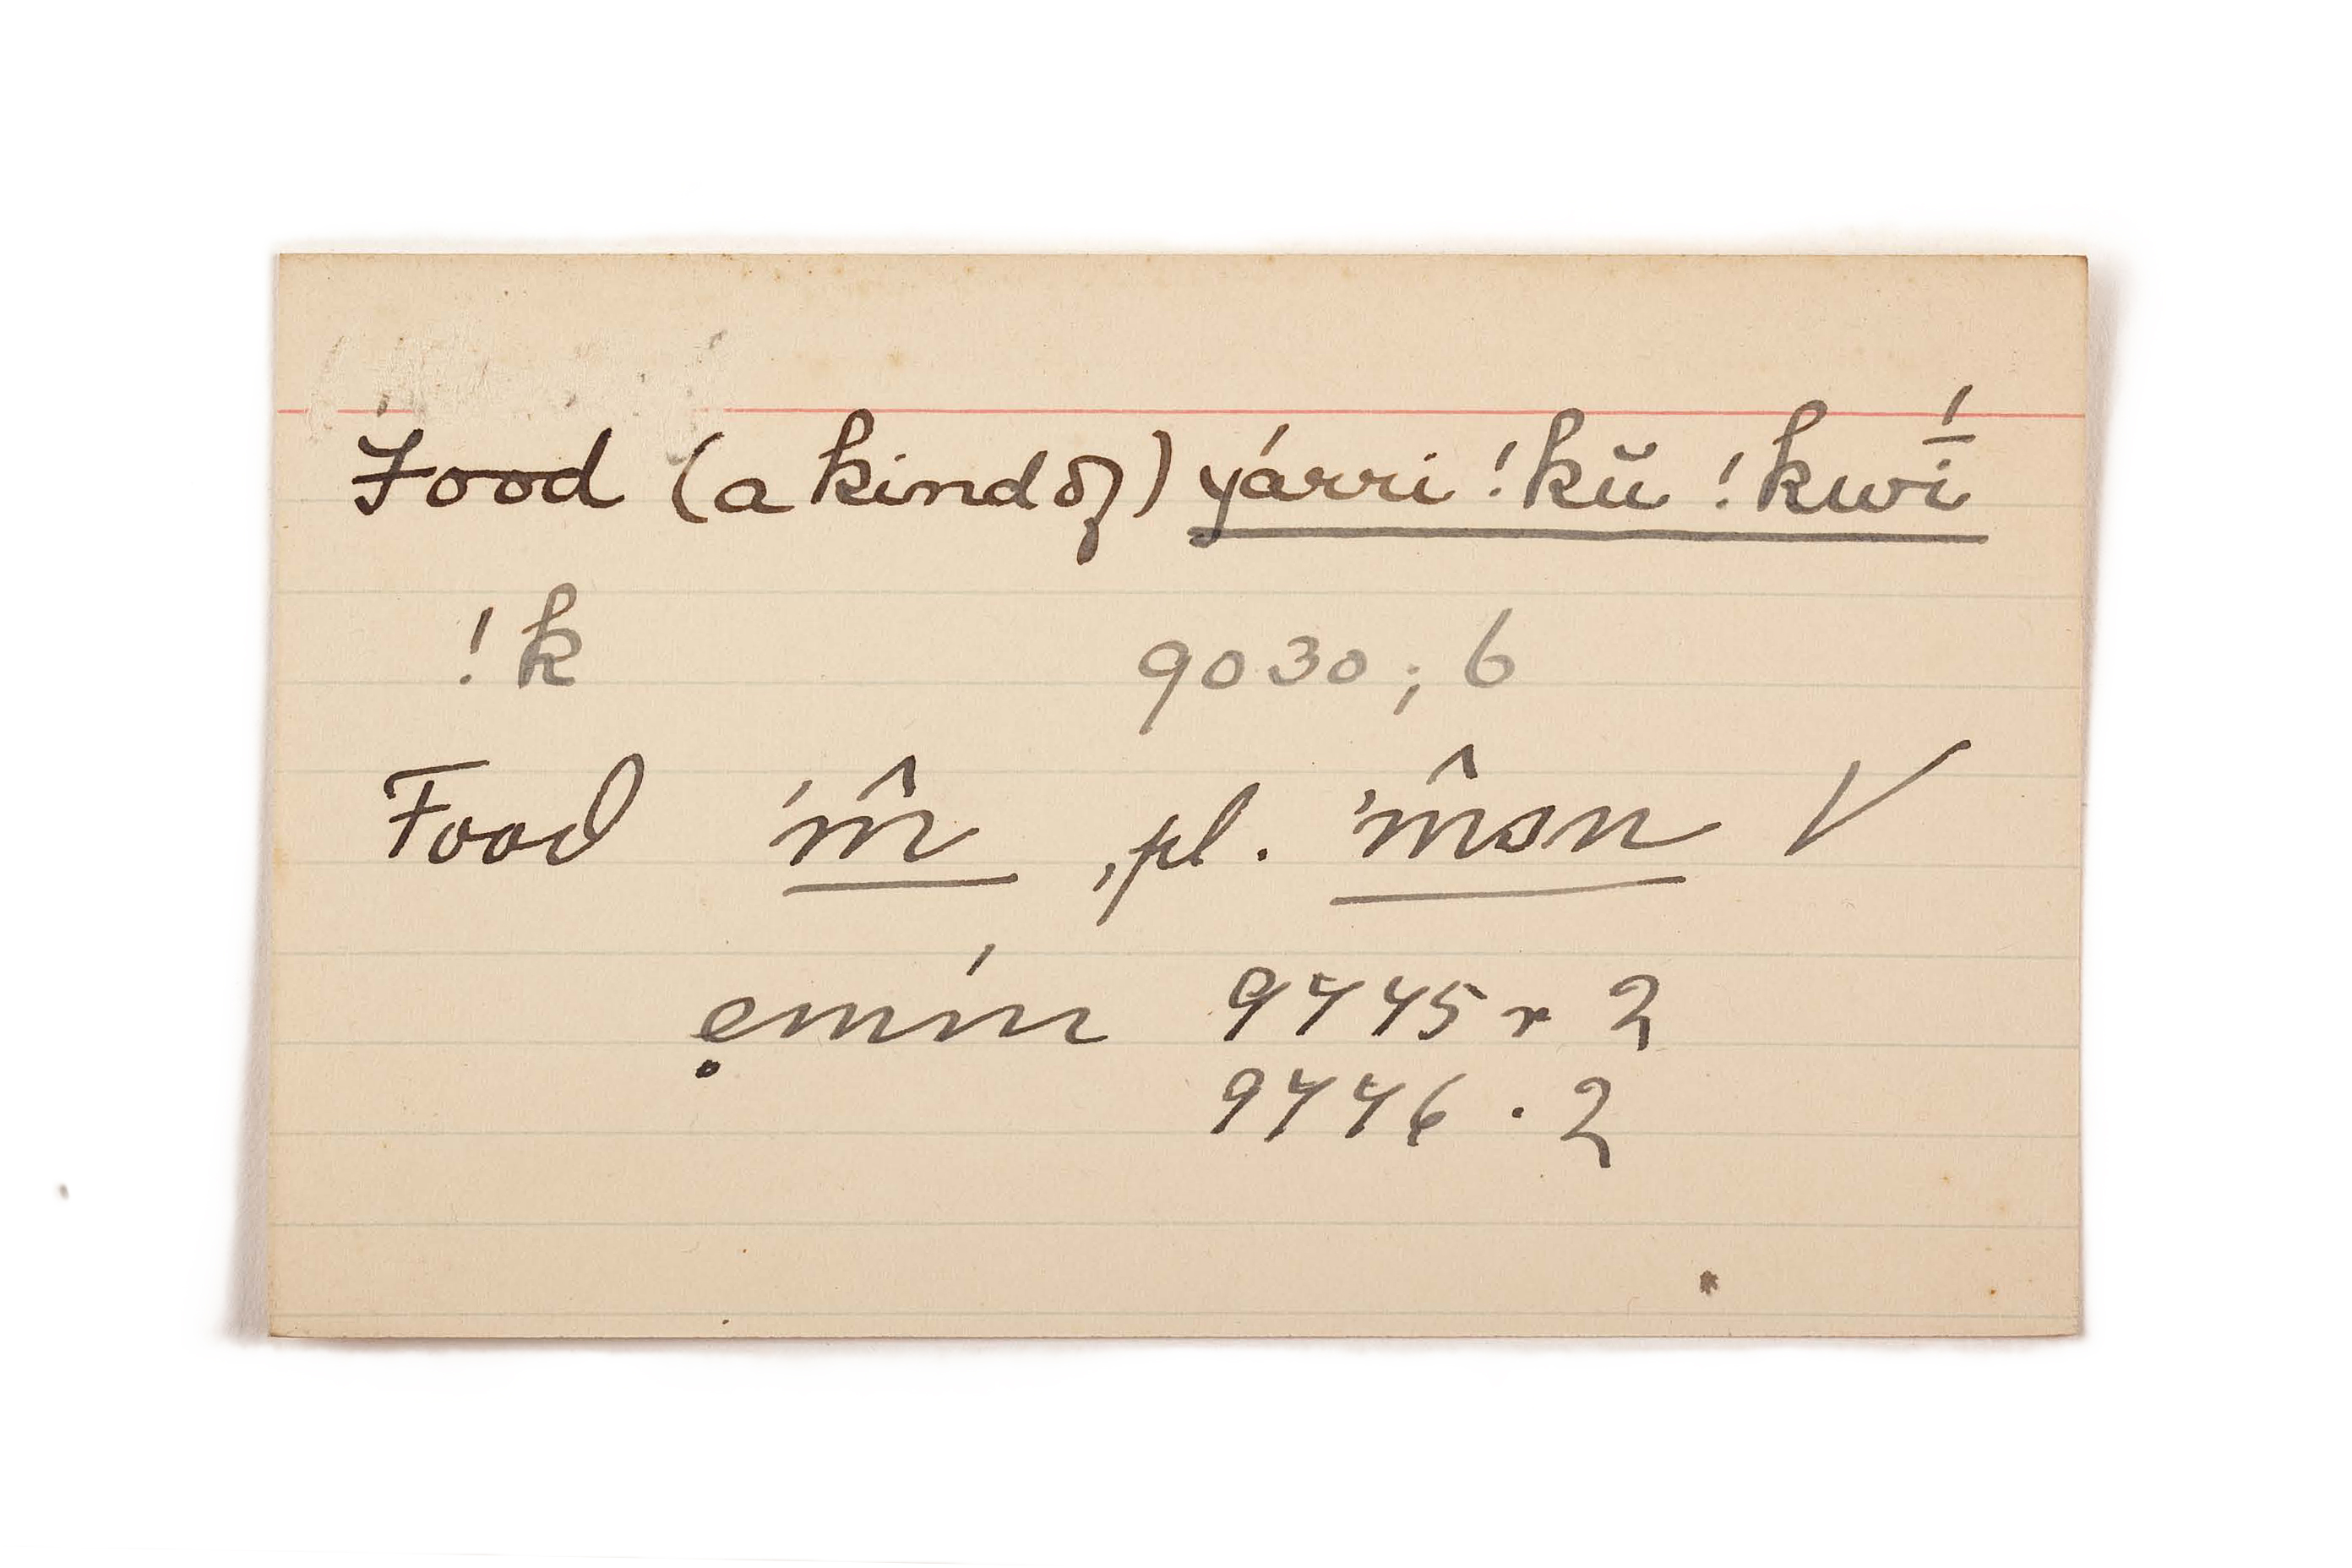 Food (a kind of) yárri !kŭ !kwī́
!k 9030; 6
Food 'm̂, pl. 'm̂ɜn V
ẹmḿ 9445 r 2
9446 . 2